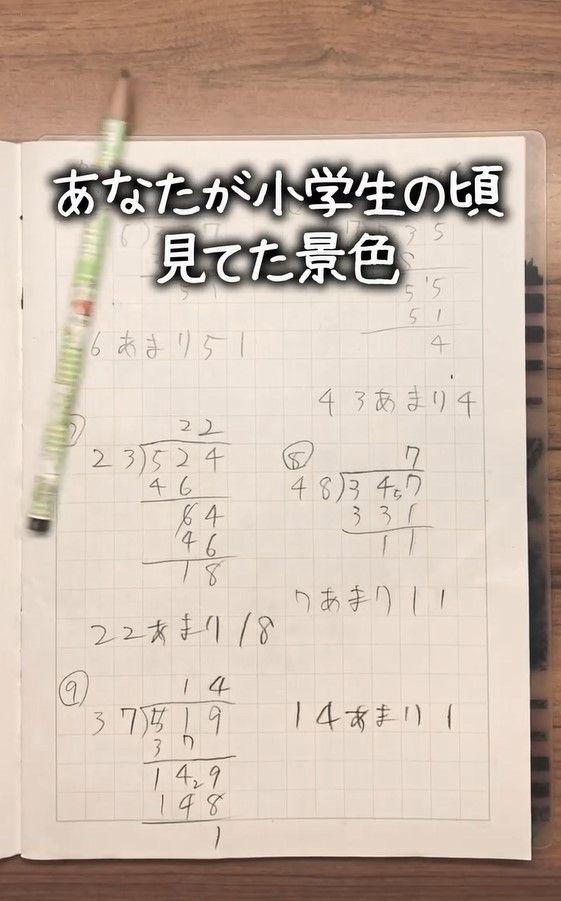 あなたが小学生の頃
見てた景色
3 5
5 5
5 1
5 1
4
6あまり51
43あまり4
22
23)524
46
64
46
18
22あまり18
⑧
7
48)347
331
11
7あまり11
⑨
14
37)519
37
149
148
1
14あまり1